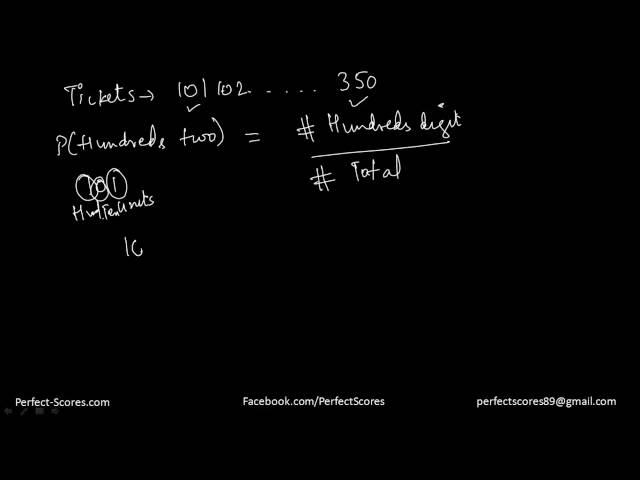 Tickets → 101 102 . . . . . 350
P(Hundreds two) = # Hundreds digit
# Total
101
Hund. Ten Units
10
Perfect-Scores.com Facebook.com/PerfectScores perfectscores89@gmail.com